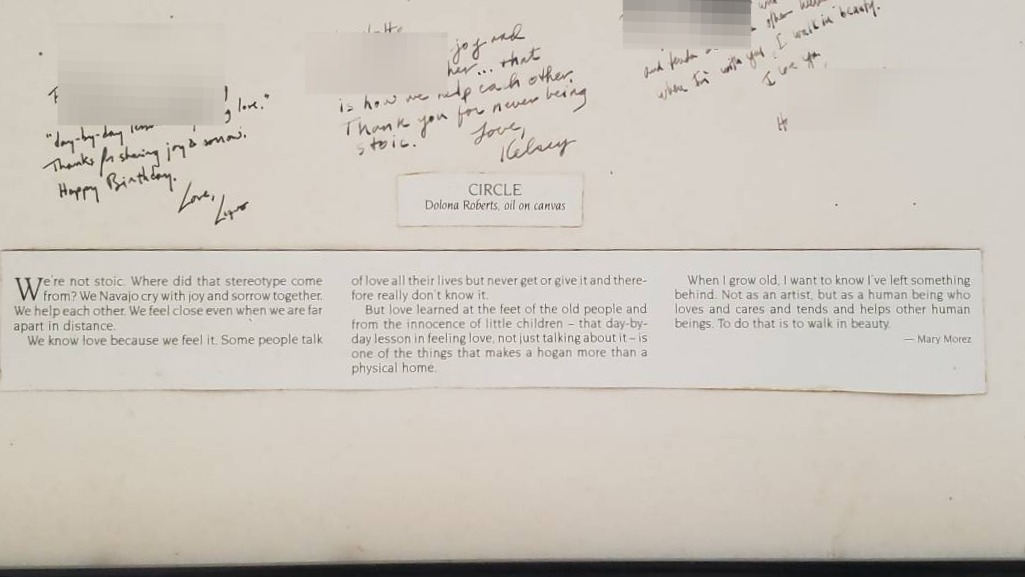 love."
"day-by-day
Thanks for sharing joy & sorrow.
Happy Birthday.
Love,
joy and
her... that
is how we help each other.
Thank you for never being
stoic.
Love,
Kelsey
other
and
when I'm with you, I walk in beauty.
I love you,
CIRCLE
Dolona Roberts, oil on canvas
We're not stoic. Where did that stereotype come
from? We Navajo cry with joy and sorrow together.
We help each other. We feel close even when we are far
apart in distance.
We know love because we feel it. Some people talk
of love all their lives but never get or give it and there-
fore really don't know it.
But love learned at the feet of the old people and
from the innocence of little children – that day-by-
day lesson in feeling love, not just talking about it – is
one of the things that makes a hogan more than a
physical home.
When I grow old, I want to know I've left something
behind. Not as an artist, but as a human being who
loves and cares and tends and helps other human
beings. To do that is to walk in beauty.
— Mary Morez